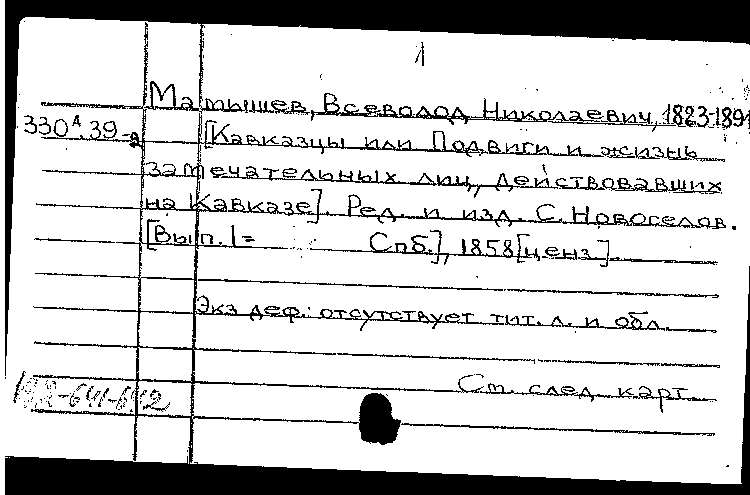 1
Матышев, Всеволод Николаевич, 1823-1891
330А.39-а [Кавказцы или Подвиги и жизнь
замечательных лиц, действовавших
на Кавказе]. Ред. и изд. С. Новоселов.
[Вып. 1= Спб.], 1858[ценз].
Экз деф.: отсутствует тит. л. и обл.
См. след карт.
-641-642